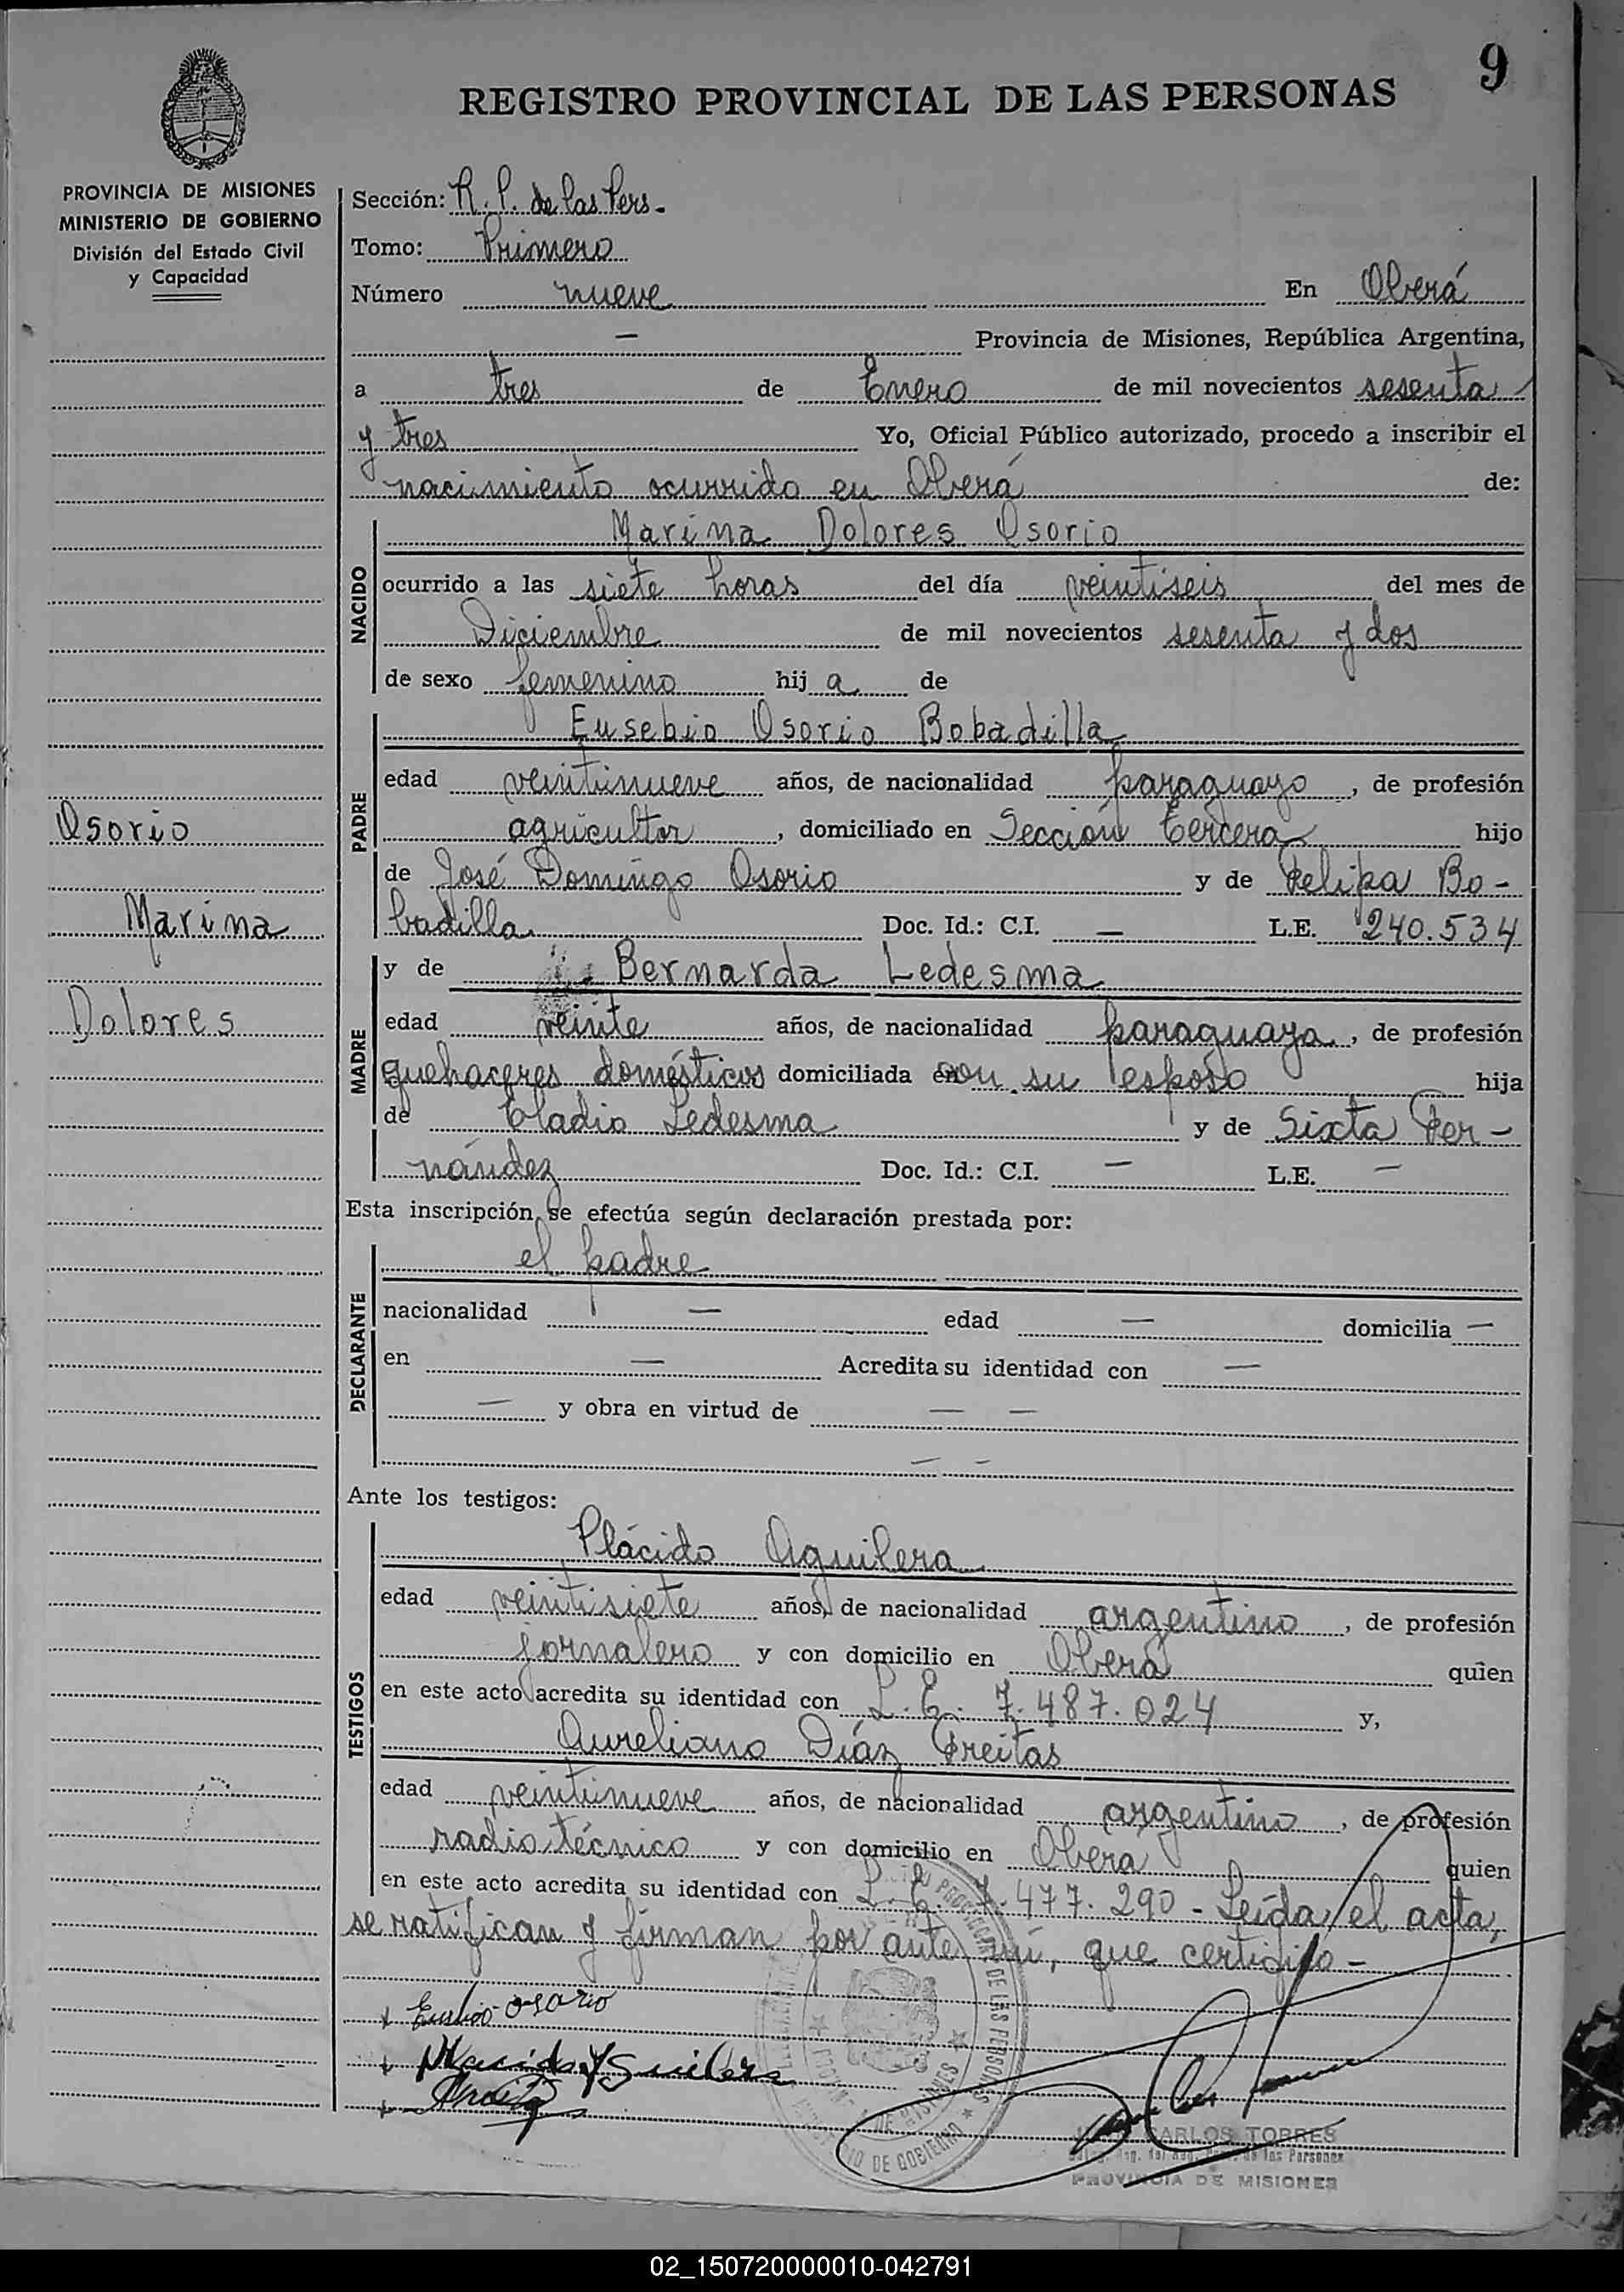 9
REGISTRO PROVINCIAL DE LAS PERSONAS
PROVINCIA DE MISIONES
MINISTERIO DE GOBIERNO
División del Estado Civil
y Capacidad
Sección: R. P. de las Pers.
Tomo: Primero
Número nueve En Oberá
— Provincia de Misiones, República Argentina,
a tres de Enero de mil novecientos sesenta
y tres Yo, Oficial Público autorizado, procedo a inscribir el
nacimiento ocurrido en Oberá de:
NACIDO
Marina Dolores Osorio
ocurrido a las siete horas del día veintiseis del mes de
Diciembre de mil novecientos sesenta y dos
de sexo femenino hij a de
PADRE
Eusebio Osorio Bobadilla
edad veintinueve años, de nacionalidad paraguayo, de profesión
agricultor, domiciliado en Sección tercera hijo
de José Domingo Osorio y de Felipa Bo-
badilla Doc. Id.: C.I. — L.E. 240.534
Osorio
Marina
Dolores
MADRE
y de Bernarda Ledesma
edad veinte años, de nacionalidad paraguaya, de profesión
quehaceres domésticos domiciliada con su esposo hija
de Eladio Ledesma y de Sixta Fer-
nández Doc. Id.: C.I. — L.E. —
Esta inscripción se efectúa según declaración prestada por:
DECLARANTE
el padre
nacionalidad — edad — domicilia —
en — Acredita su identidad con —
— y obra en virtud de — —
— —
Ante los testigos:
TESTIGOS
Plácido Aguilera
edad veintisiete años, de nacionalidad argentino, de profesión
jornalero y con domicilio en Oberá quien
en este acto acredita su identidad con L. E. 7.487.024 y,
Aureliano Díaz Freitas
edad veintinueve años, de nacionalidad argentino, de profesión
radio técnico y con domicilio en Oberá quien
en este acto acredita su identidad con L. E. 7.477.290 - Leída el acta,
se ratifican y firman por ante mí, que certifico -
Eusebio osorio
Placido Aguilera
CARLOS TORRES
de las Personas
PROVINCIA DE MISIONES
DE LAS PERSONAS
DE MISIONES
DE GOBIERNO
02_150720000010-042791